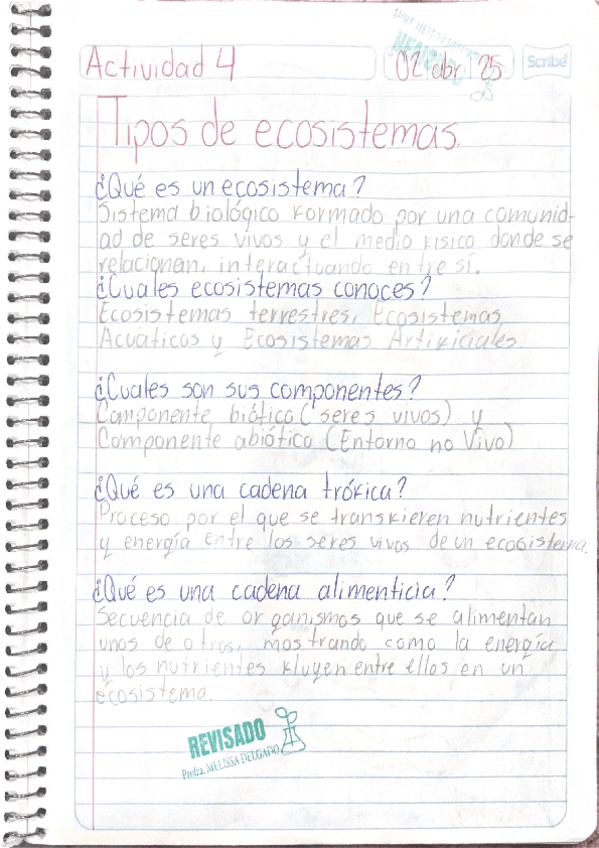 Actividad 4
02 abr 25
Scribe
REVISADO
Tipos de ecosistemas.
¿Qué es un ecosistema?
Sistema biológico formado por una comunid-
ad de seres vivos y el medio fisico donde se
relacionan, interactuando entre sí.
¿Cuales ecosistemas conoces?
Ecosistemas terrestres, Ecosistemas
Acuáticos y Ecosistemas Artificiales.
¿Cuales son sus componentes?
Componente biótico (seres vivos) y
Componente abiótico (Entorno no Vivo)
¿Qué es una cadena trófica?
Proceso por el que se transfieren nutrientes
y energía Entre los seres vivos de un ecosistema.
¿Qué es una cadena alimenticia?
Secuencia de organismos que se alimentan
unos de otros, mostrando como la energía
y los nutrientes fluyen entre ellos en un
ecosistema.
REVISADO
Profra. MELISSA DELGADO